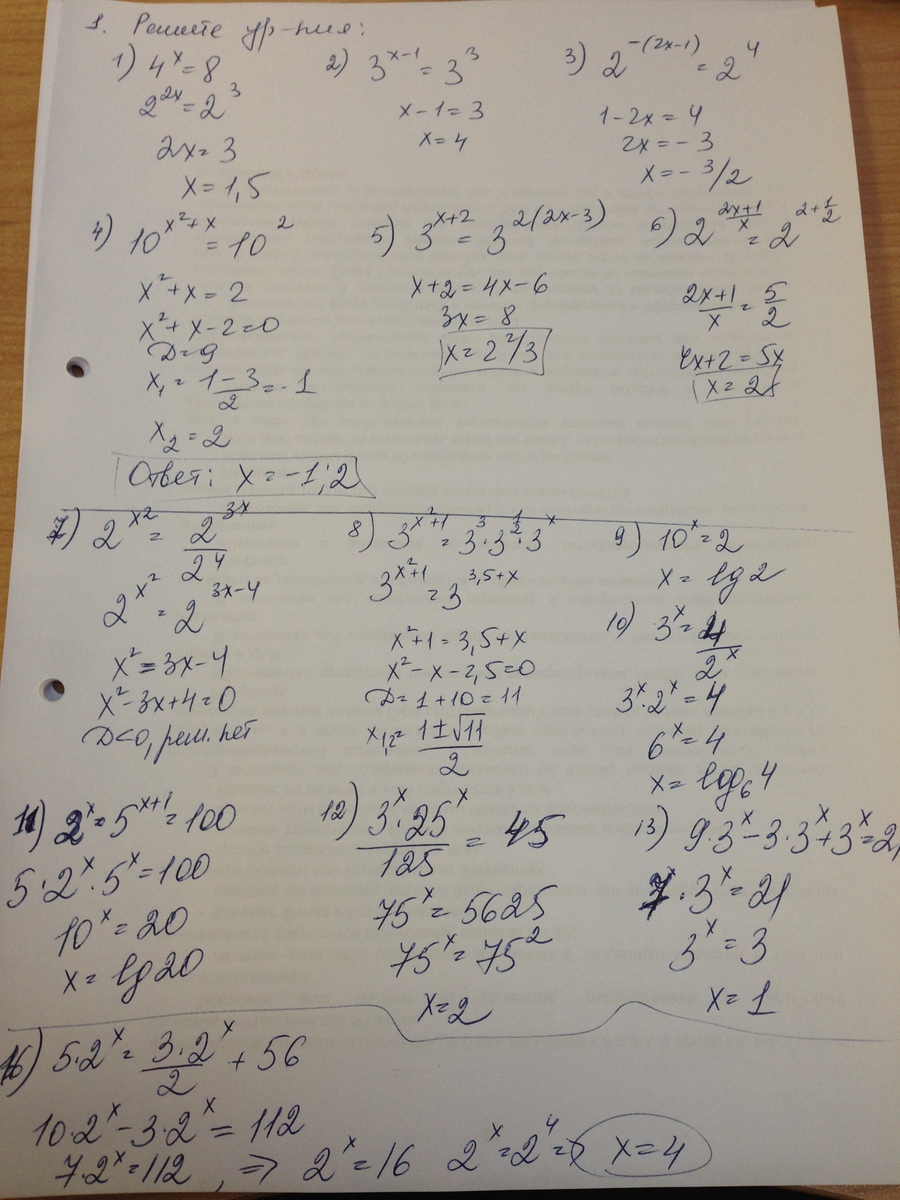 1. Решите ур-ния:
1) 4^x = 8
2^2x = 2^3
2x = 3
x = 1,5
2) 3^x-1 = 3^3
x - 1 = 3
x = 4
3) 2^-(2x-1) = 2^4
1 - 2x = 4
2x = - 3
x = - 3/2
4) 10^x²+x = 10^2
x² + x = 2
x² + x - 2 = 0
D = 9
x₁ = (1 - 3)/2 = -1
x₂ = 2
Ответ: x = -1; 2
5) 3^x+2 = 3^2(2x-3)
x + 2 = 4x - 6
3x = 8
x = 2 2/3
6) 2^(2x+1)/x = 2^2+1/2
(2x+1)/x = 5/2
4x + 2 = 5x
x = 2
7) 2^x² = 2^3x/2^4
2^x² = 2^3x-4
x² = 3x - 4
x² - 3x + 4 = 0
D < 0, реш. нет
8) 3^x²+1 = 3^3 · 3^1/2 · 3^x
3^x²+1 = 3^3,5+x
x² + 1 = 3,5 + x
x² - x - 2,5 = 0
D = 1 + 10 = 11
x₁,₂ = (1 ± √11)/2
9) 10^x = 2
x = lg 2
10) 3^x = 4/2^x
3^x · 2^x = 4
6^x = 4
x = log₆ 4
11) 2^x = 5^x+1 = 100
5 · 2^x · 5^x = 100
10^x = 20
x = lg 20
12) (3^x · 25^x)/125 = 45
75^x = 5625
75^x = 75^2
x = 2
13) 9 · 3^x - 3 · 3^x + 3^x = 2
7 · 3^x = 21
3^x = 3
x = 1
16) 5 · 2^x = (3 · 2^x)/2 + 56
10 · 2^x - 3 · 2^x = 112
7 · 2^x = 112, => 2^x = 16 2^x = 2^4 => x = 4